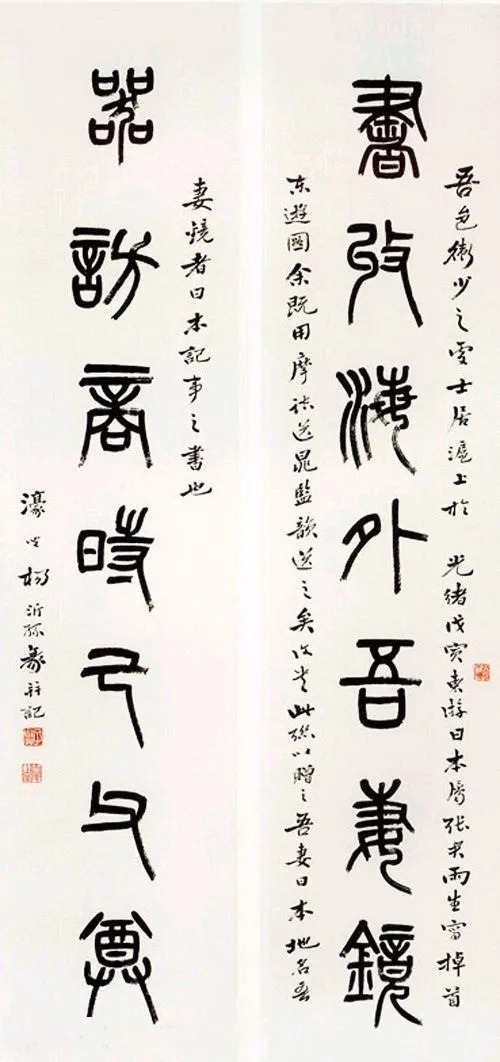 吾邑衛少之雯士居滬上於 光緒戊寅東游日本屬張君雨生寫掉首
書攷海外吾妻鏡
东遊國余既用摩詰送晁監韻送之矣又書此聯以贈之吾妻日本地名吾
妻鏡者日本記事之書也
器訪商時己父尊
濠叟楊沂孫篆并記